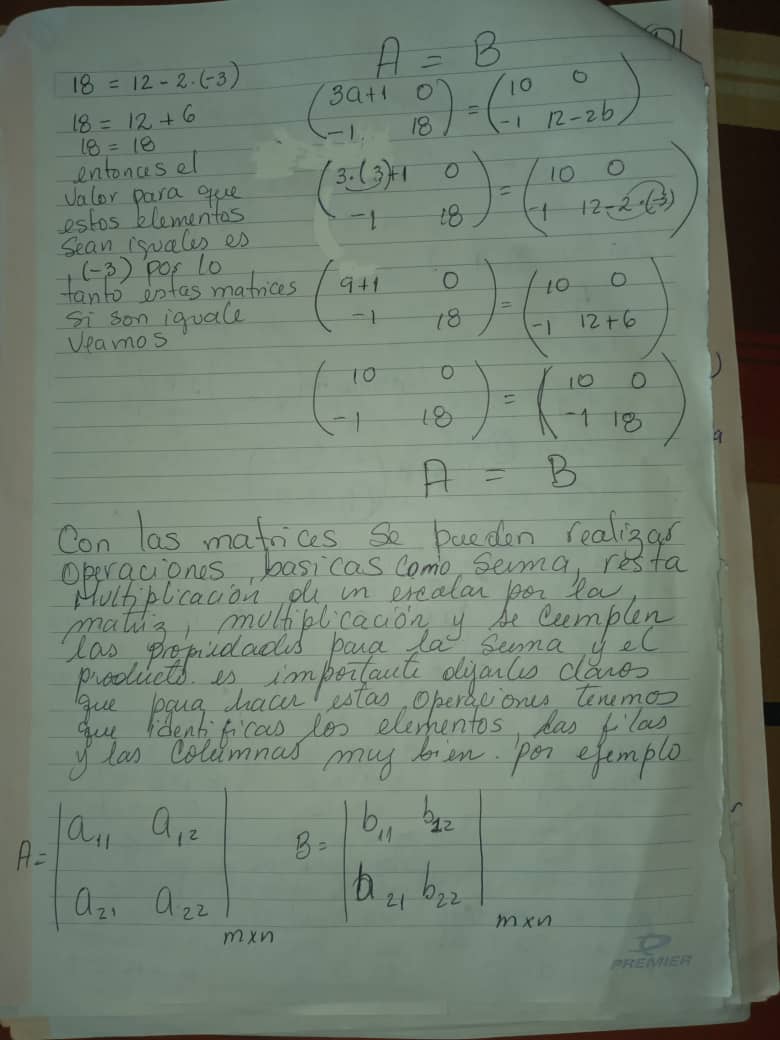 A = B
18 = 12 - 2·(-3)
18 = 12 + 6
18 = 18
entonces el
valor para que
estos elementos
sean iguales es
(-3) por lo
tanto estas matrices
si son iguale
veamos
(3a+1 0) = (10 0)
(-1 18) (-1 12-2b)
(3·(3)+1 0) = (10 0)
(-1 18) (-1 12-2·(-3))
(9+1 0) = (10 0)
(-1 18) (-1 12+6)
(10 0) = (10 0)
(-1 18) (-1 18)
A = B
Con las matrices se pueden realizar
operaciones basicas como suma, resta
Multiplicación de un escalar por la
matriz, multiplicación y se cumplen
las propiedades para la suma y el
producto. es importante dejarles claros
que para hacer estas operaciones tenemos
que identificas los elementos, las filas
y las columnas muy bien. por ejemplo
A = |a11 a12| B = |b11 b12|
|a21 a22| mxn |b21 b22| mxn
PREMIER